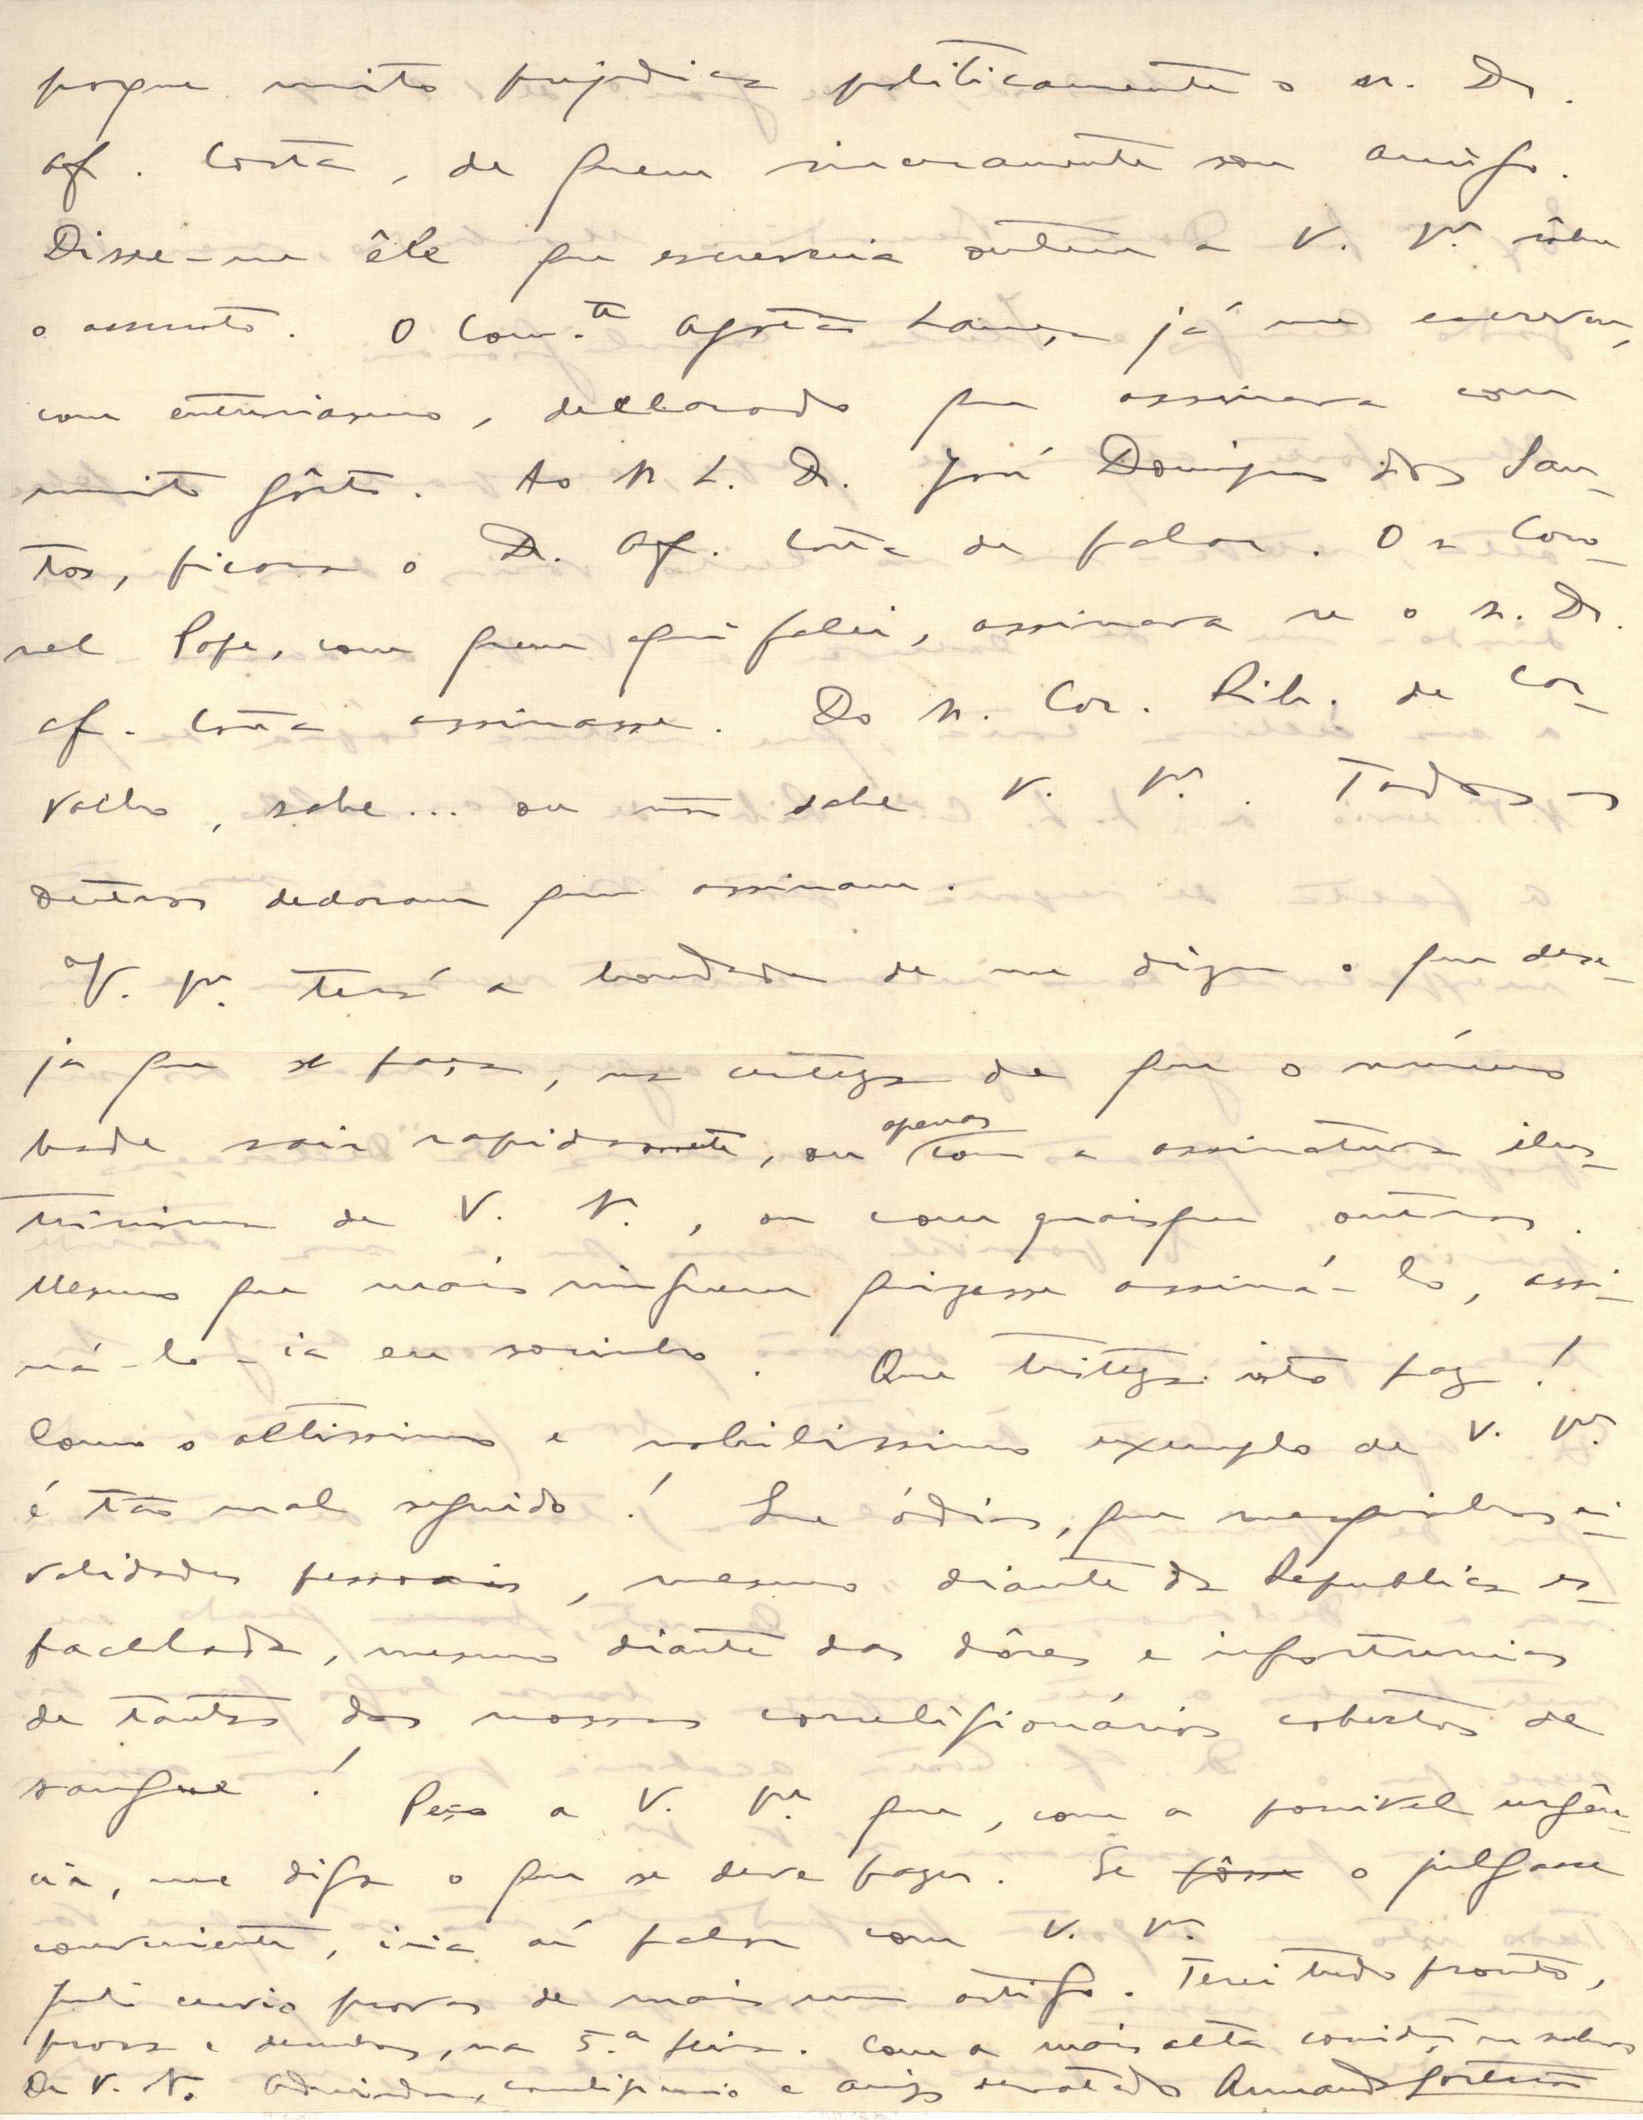 porque muito prejudica politicamente o sr. Dr.
Af. Costa, de quem sinceramente sou amigo.
Disse-me êle que escreveria ontem a V. Ex.ª sôbre
o assunto. O Com.te Agatão Lança já me escreveu,
com entusiasmo, declarando que assinava com
muito gôsto. Ao sr. Dr. José Domingues dos San-
tos, ficara o Dr. Af. Costa de falar. O sr. Coro-
nel Pope, com quem aqui falei, assinava se o sr. Dr.
Af. Costa assinasse. Do sr. Cor. Rib. de Car-
valho, sabe... ou não sabe V. Ex.ª. Todos os
outros declaram que assinam.
V. Ex.ª terá a bondade de me dizer o que dese-
ja que se faça, na certeza de que o número
pode sair rapidamente, ou apenas com a assinatura ilus-
tríssima de V. Ex.ª, ou com quaisquer outras.
Mesmo que mais ninguem quizesse assiná-lo, assi-
ná-lo-ia eu sozinho. Que tristeza isto faz!
Como o altissimo e nobilíssimo exemplo de V. Ex.ª
é tão mal seguido! Que ódios, que mesquinhas ri-
validades pessoais, mesmo diante da Republica es-
facelada, mesmo diante das dôres e infortunios
de tantos dos nossos correligionários cobertos de
sangue! Peço a V. Ex.ª que, com a possivel urgên-
cia, me diga o que se deve fazer. Se fôsse o julgasse
conveniente, iria aí falar com V. Ex.ª.
Junto envio provas de mais um artigo. Terei tudo pronto,
prosa e desenhos, na 5.ª feira. Com a mais alta consideração
De V. Ex.ª admirador, correligionario e amigo devotado Armando Cortesão